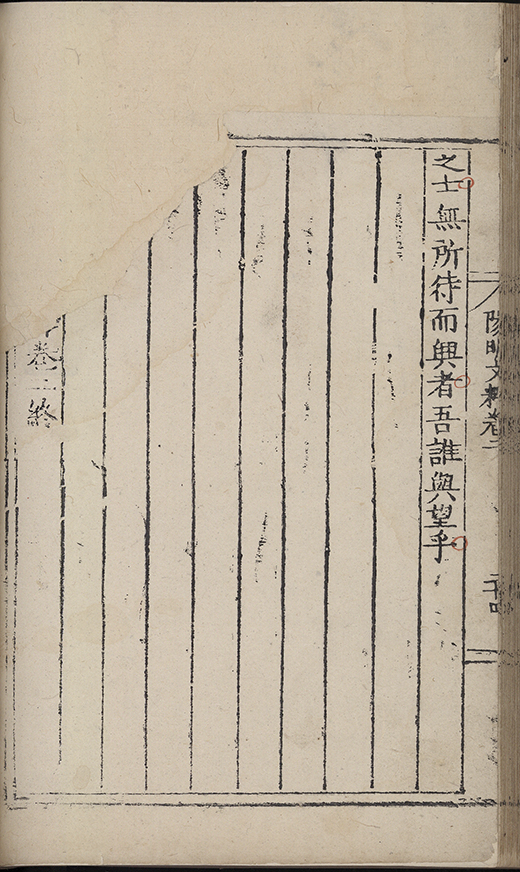 之士無所待而興者吾誰與望乎
陽明文粹卷二
二十四
卷二終